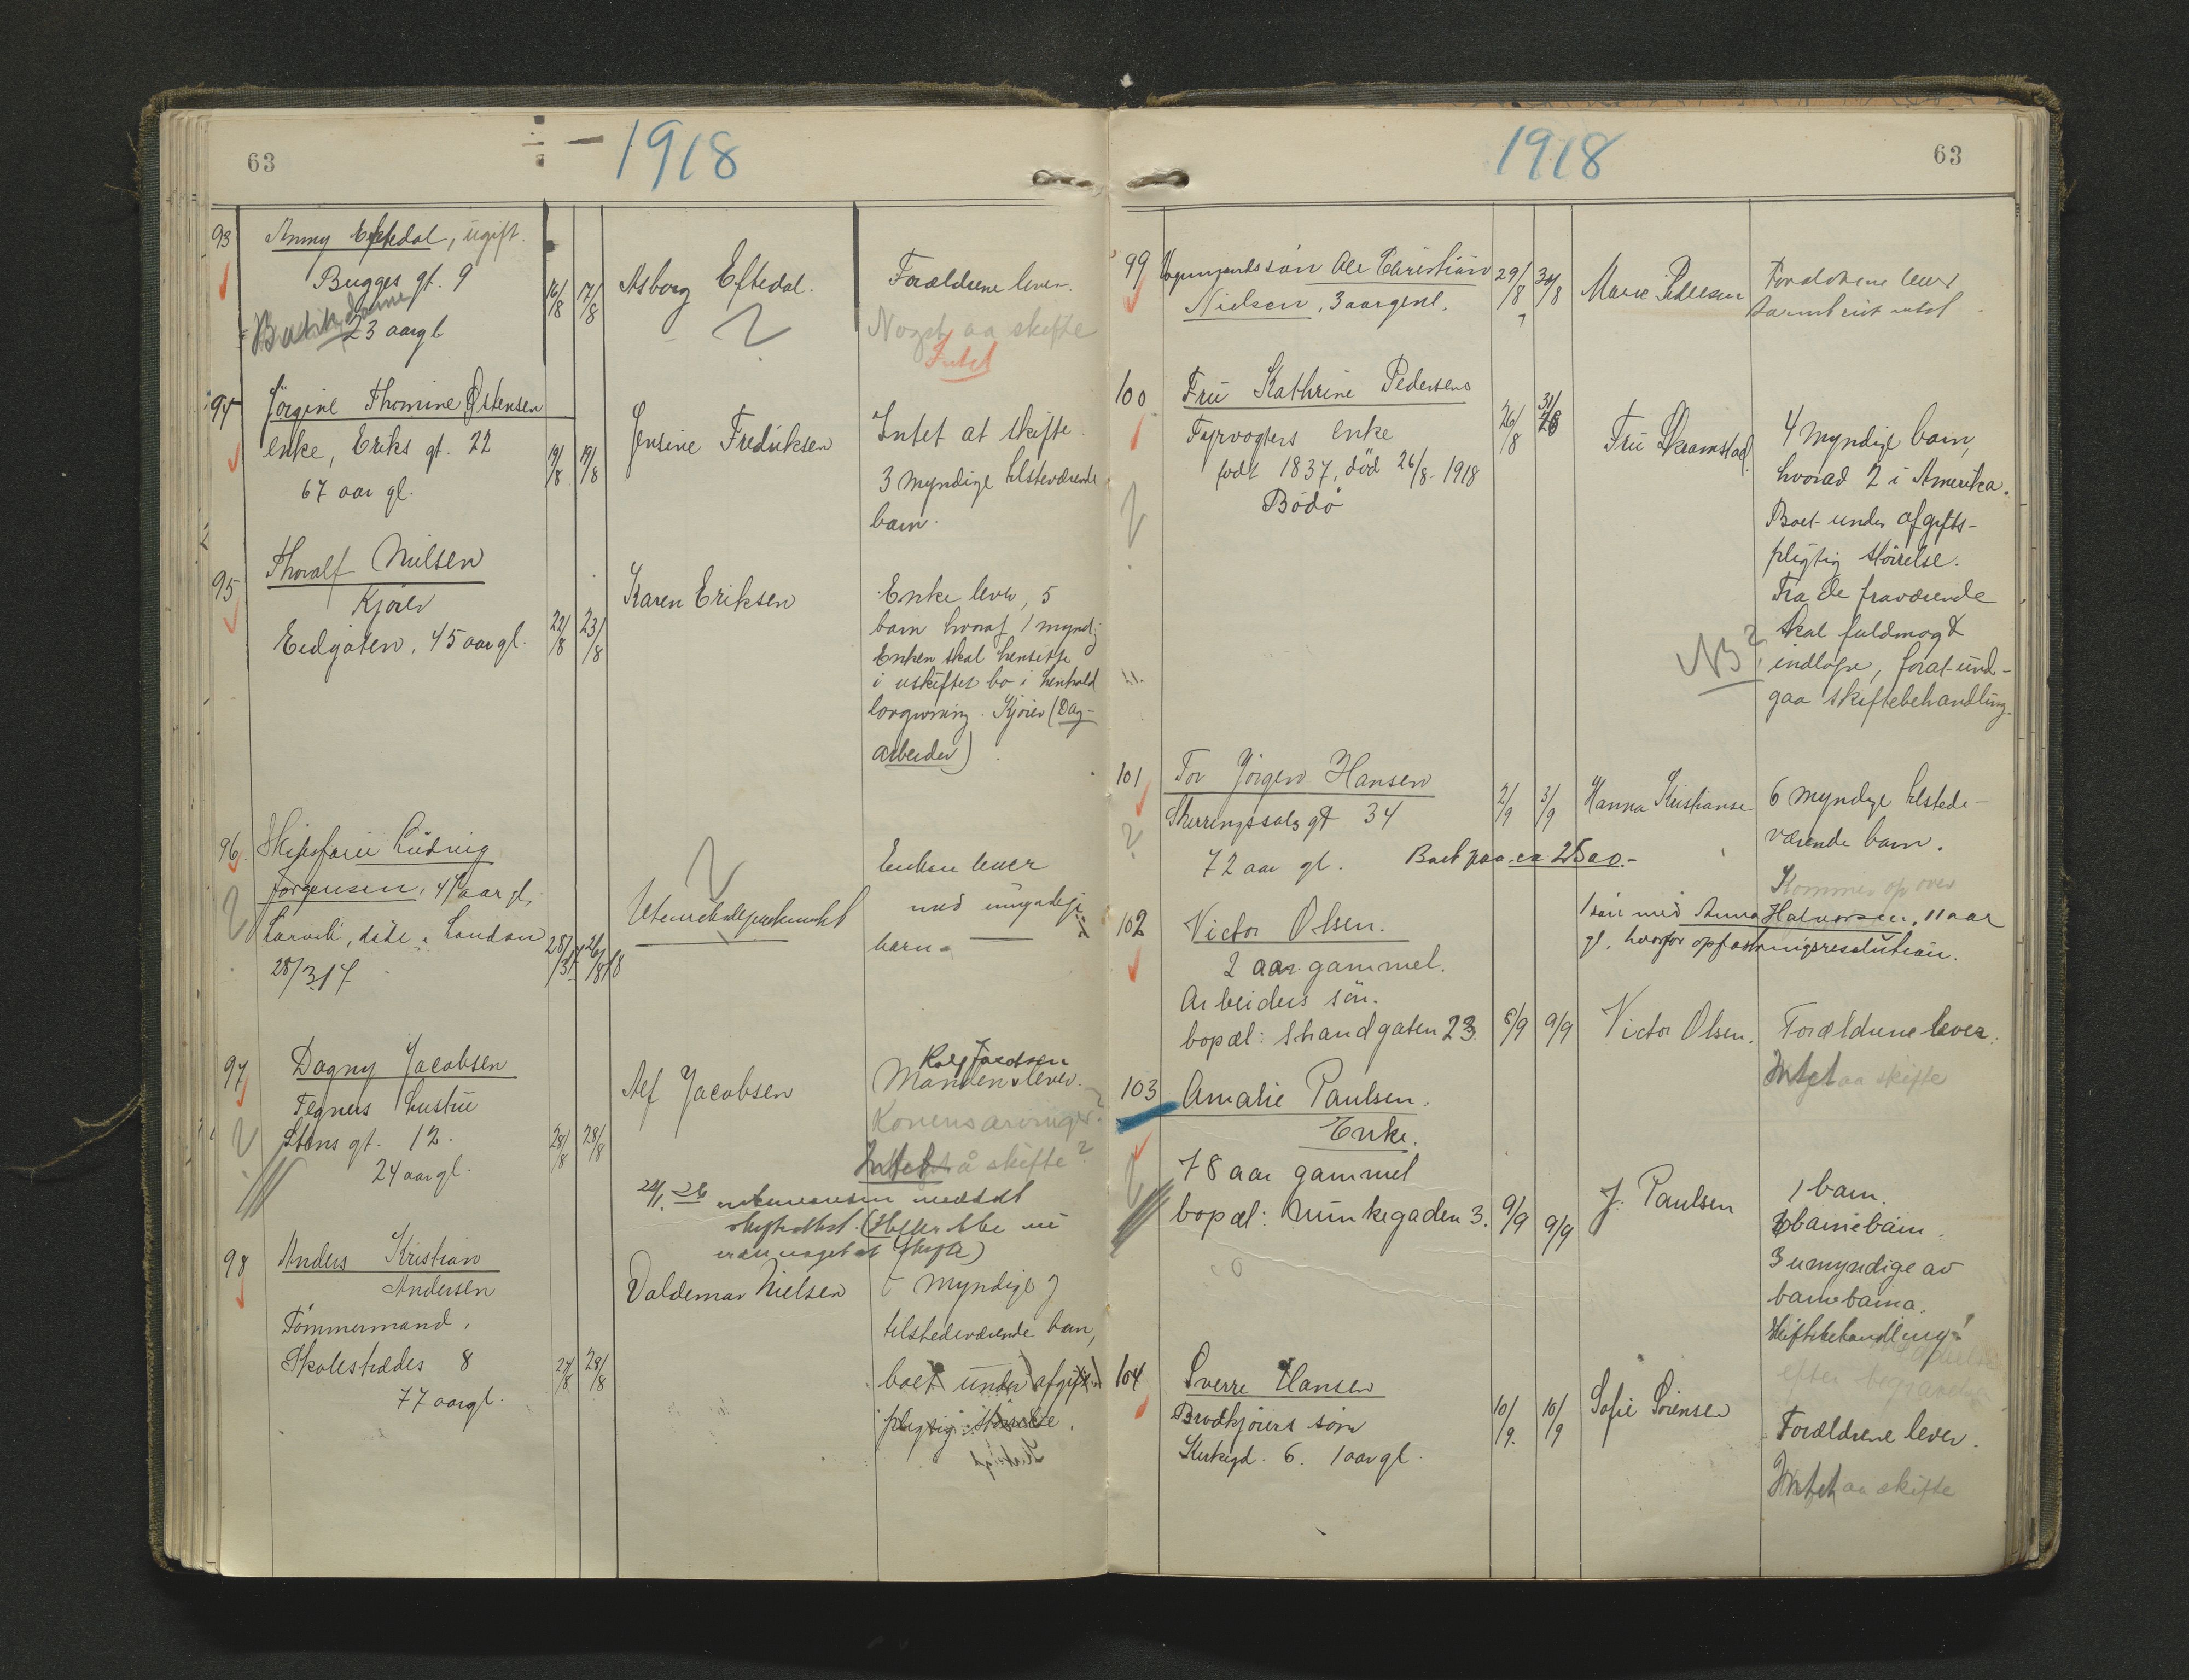 63
1918
93
Anny Eftedal, ugift.
Bugges gt. 9
23 aargl
16/8
17/8
Asborg Eftedal.
Forældrene lever.
Noget aa skifte
Intet
94
Jörgine Thomine Östensen
enke, Eriks gt. 22
67 aar gl.
19/8
19/8
Jensine Fredriksen
Intet at skifte.
3 myndige tilsteværende
barn.
95
Thoralf Nilsen
Kjörer
Eedgaten, 45 aar gl.
22/8
23/8
Karen Eriksen
Enke lever, 5
barn hvoraf 1 myndg
Enken skal hensitte
i uskiftet bo i henhold
lovgivning. Kjörer (Dag-
arbeider)
96
Skipsförer Ludvig
Jörgensen, 41 aar gl,
Larvik, döde i London
28/3 17
26/8 18
Utenriksdepartementet
Enken lever
med umyndige
barn.
97
Dagny Jacobsen
Tegners hustru
Stens gt. 12.
24 aar gl.
28/8
28/8
Alf Jacobsen
Manden lever.
Konens arvinger?
Intet å skifte?
98
Anders Kristian
Andersen
Tömmermand,
Skolestrædes 8
77 aargl.
27/8
28/8
Valdemar Nielsen
myndige
tilstedeværende barn,
boet under afgifts-
pligtig störrelse.
1918
63
99
Ole Christian
Nielsen, 3 aargml.
29/8
30/8
Marie Pedersen
Forældrene lever
100
Fru Kathrine Pedersens
Fyrvogters enke
födt 1837, död 26/8-1918
Bodö
26/8
31/8
Fru Skramstad.
4 myndige barn,
hvorad 2 i Amerika.
Boet under afgifts-
pligtig störrelse.
Fra de fraværende
skal fuldmagt
NB? indlöpe, forat und-
gaa skiftebehandling.
101
Tor Jörgen Hansen
Skirringssals gt 34
72 aar gl.
Boet paa ca 2500.-
2/9
3/9
Hanna Kristianse
6 myndige tilstede-
værende barn.
Kommer op over
1 sön med Anna Halvorsen, 11 aar
gl, hvorfor opfostringsresolution.
102
Victor Olsen.
2 aar gammel.
Arbeiders sön.
bopæl: Strandgaten 23.
8/9
9/9
Victor Olsen.
Forældrene lever.
Intet aa skifte
103
Amalie Paulsen.
Enke.
78 aar gammel
bopæl: Munkegaden 3.
9/9
9/9
J. Paulsen
1 barn.
barnebarn.
3 umyndige av
barnebarna.
Skiftebehandling!
efter begravelse
104
Sverre Hansen
Brödkjörers sön
Kirkegd. 6. 1 aar gl.
10/9.
10/9
Sofie Sörensen
Forældrene lever.
Intet aa skifte